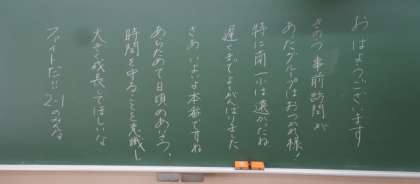 おはようございます
きのう事前訪問が
あったグループはおつかれ様！
特に南一小は遠かったね
遅くまでよくがんばりました
さあいよいよ本番ですね
あらためて日頃のあいさつ、
時間を守ることを意識し
大きく成長してほしいな
ファイトだ!! 2-1のみんな